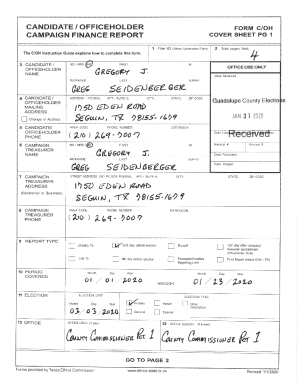 CANDIDATE / OFFICEHOLDER
CAMPAIGN FINANCE REPORT
FORM C/OH
COVER SHEET PG 1
The C/OH Instruction Guide explains how to complete this form.
1 Filer ID (Ethics Commission Filers)
2 Total pages filed:
4
3 CANDIDATE / OFFICEHOLDER NAME
MS / MRS / MR FIRST MI
GREGORY J.
NICKNAME LAST SUFFIX
GREG SEIDENBERGER
OFFICE USE ONLY
Date Received
Guadalupe County Elections
JAN 31 2020
Received
4 CANDIDATE / OFFICEHOLDER MAILING ADDRESS
Change of Address
ADDRESS / PO BOX; APT / SUITE #; CITY; STATE; ZIP CODE
1750 EDEN ROAD
SEGUIN, TX 78155-1679
5 CANDIDATE / OFFICEHOLDER PHONE
AREA CODE PHONE NUMBER EXTENSION
(210) 269-7007
Receipt # Amount $
Date Processed
Date Imaged
6 CAMPAIGN TREASURER NAME
MS / MRS / MR FIRST MI
GREGORY J.
NICKNAME LAST SUFFIX
GREG SEIDENBERGER
7 CAMPAIGN TREASURER ADDRESS
(Residence or Business)
STREET ADDRESS (NO PO BOX PLEASE); APT / SUITE #; CITY; STATE; ZIP CODE
1750 EDEN ROAD
SEGUIN, TX 78155-1679
8 CAMPAIGN TREASURER PHONE
AREA CODE PHONE NUMBER EXTENSION
(210) 269-7007
9 REPORT TYPE
January 15
30th day before election
Runoff
15th day after campaign treasurer appointment (Officeholder Only)
July 15
8th day before election
Final Report
10 PERIOD COVERED
Month Day Year
01 / 01 / 2020
THROUGH
Month Day Year
01 / 23 / 2020
11 ELECTION
ELECTION DATE
Month Day Year
03 / 03 / 2020
ELECTION TYPE
Primary
Runoff
Other
Description
General
Special
12 OFFICE
OFFICE HELD (if any)
COUNTY COMMISSIONER PCT 1
13 OFFICE SOUGHT (if known)
COUNTY COMMISSIONER PCT 1
GO TO PAGE 2
Forms provided by Texas Ethics Commission
www.ethics.state.tx.us
Revised 1/1/2020